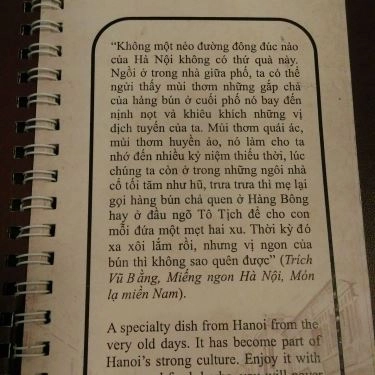 “Không một nẻo đường đông đúc nào
của Hà Nội không có thứ quà này.
Ngồi ở trong nhà giữa phố, ta có thể
ngửi thấy mùi thơm những gắp chả
của hàng bún ở cuối phố nó bay đến
nịnh nọt và khiêu khích những vị
dịch tuyến của ta. Mùi thơm quái ác,
mùi thơm huyền ảo, nó làm cho ta
nhớ đến nhiều kỷ niệm thiếu thời, lúc
chúng ta còn ở trong những ngôi nhà
cổ tối tăm như hũ, trưa trưa thì mẹ lại
gọi hàng bún chả quen ở Hàng Bông
hay ở đầu ngõ Tô Tịch để cho con
mỗi đứa một mẹt hai xu. Thời kỳ đó
xa xôi lắm rồi, nhưng vị ngon của
bún thì không sao quên được” (Trích
Vũ Bằng, Miếng ngon Hà Nội, Món
lạ miền Nam).
A specialty dish from Hanoi from the
very old days. It has become part of
Hanoi's strong culture. Enjoy it with
you will never